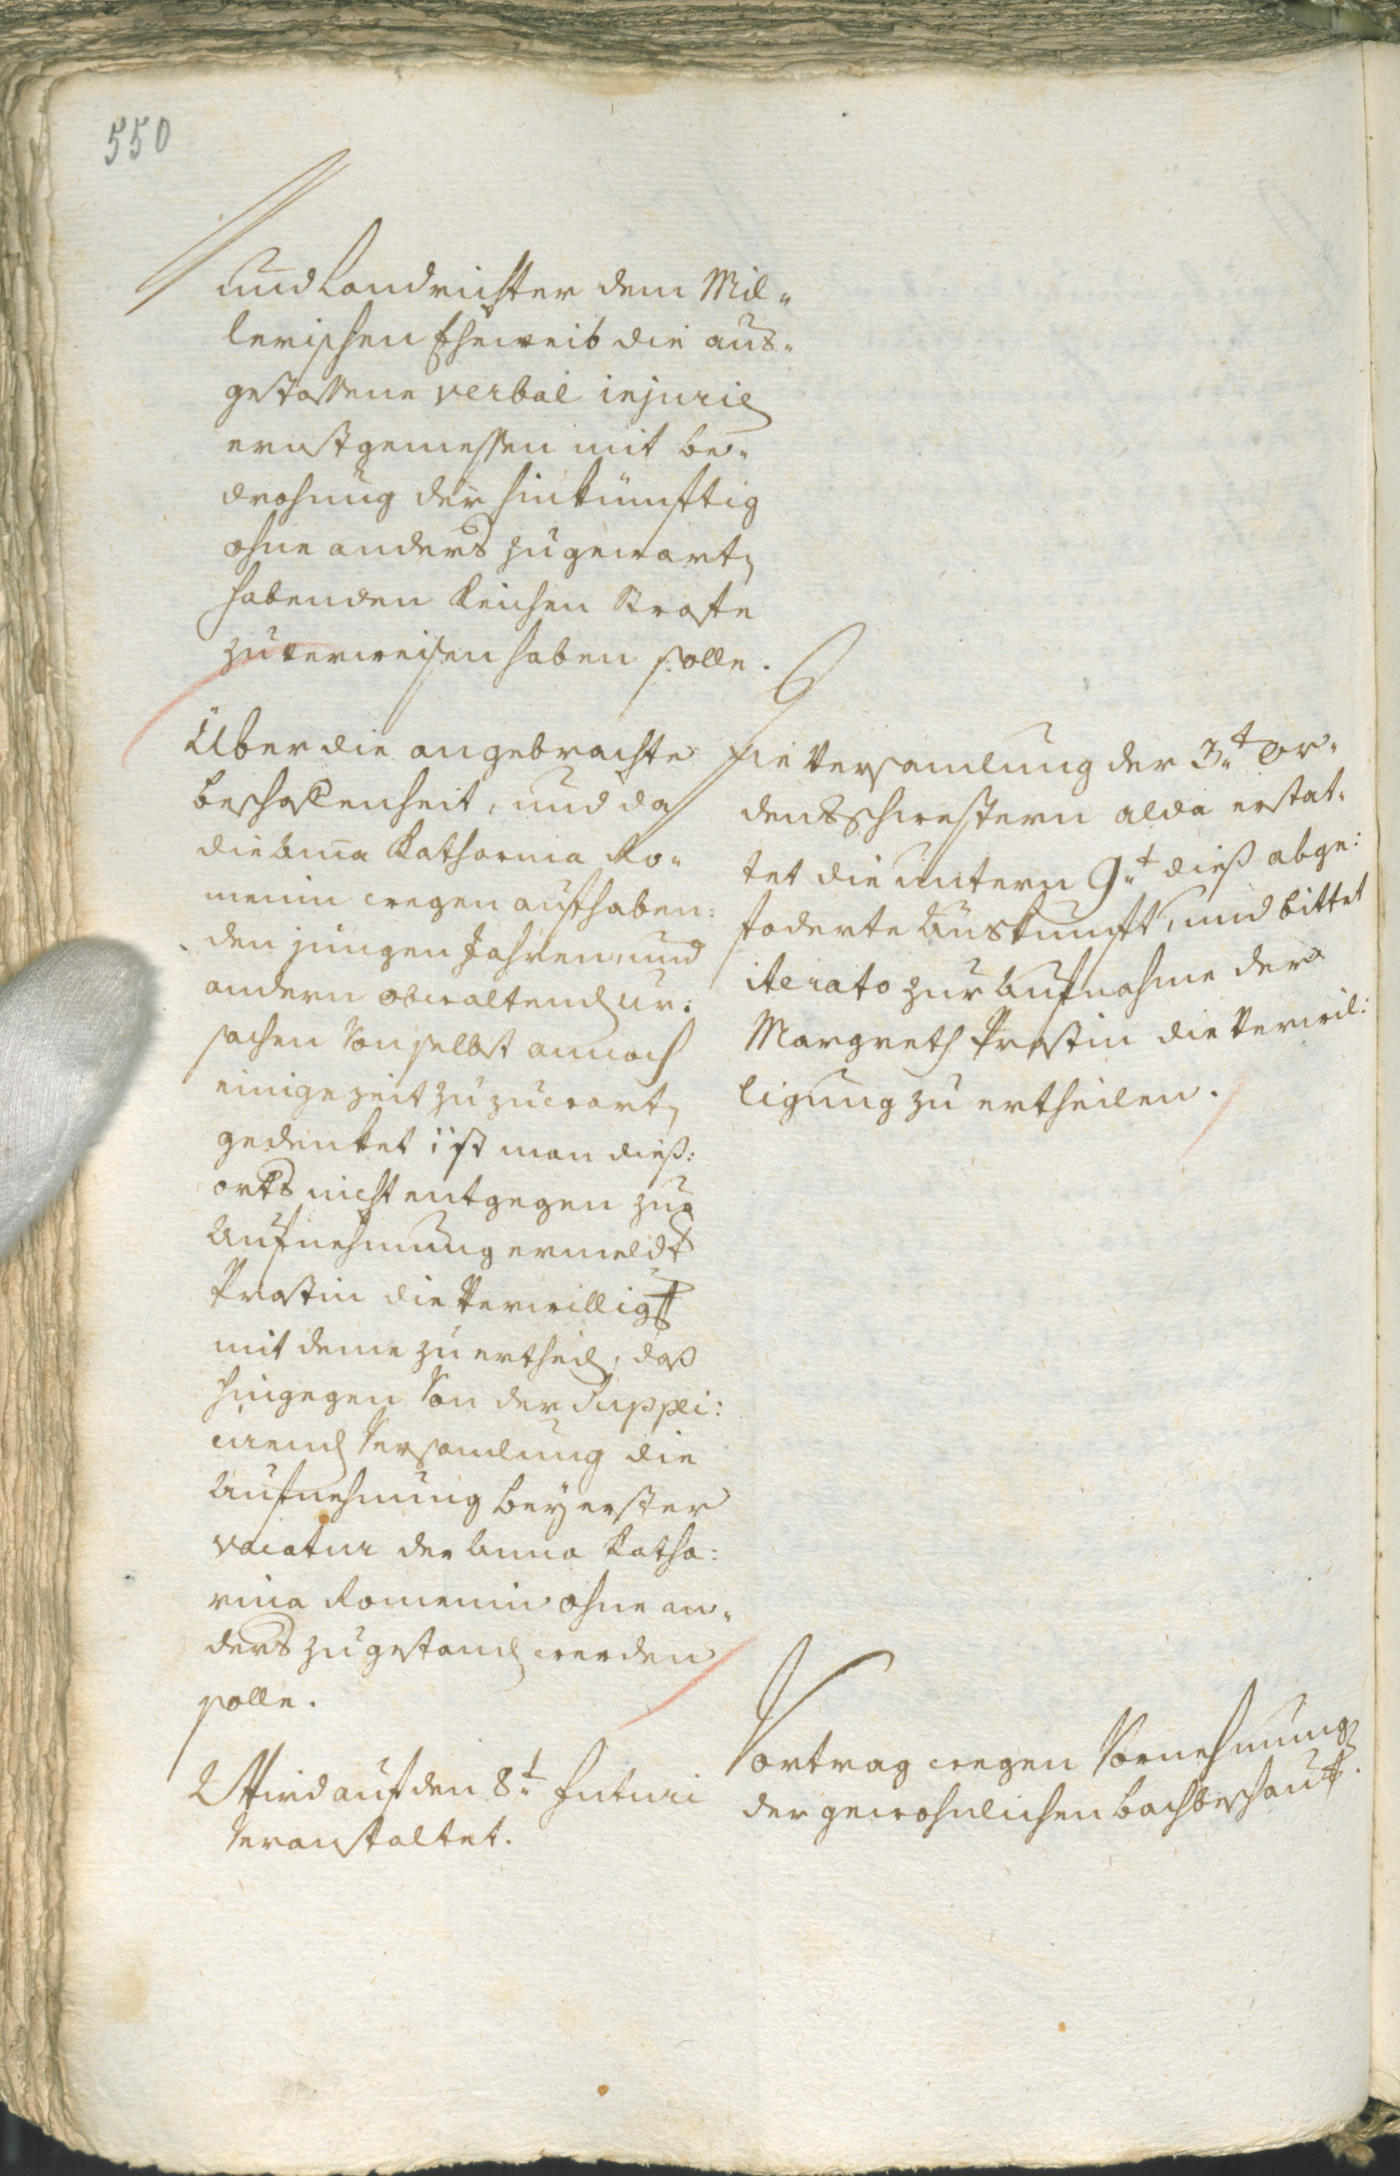 550
und Landrichter dem Mil„
lerischen Eheweib die aus„
gestossene verbal injurien
ernstgemessen mit be„
drohung der hinkünfftig
ohne anders zugewarten
habenden Keichen Strafe
zuverweisen haben solle.
Über die angebrachte
beschaffenheit, und da
die Anna Katharina Ro„
menin wegen aufhaben:
den jungen Jahren, und
andern obwaltenden ur:
sachen von selbst annoch
einige zeit zuzuwarten
gedenket: ist man dieß:
orts nicht entgegen zur
Aufnehmung ermeldter
Prastin die Verwilligung
mit deme zu ertheilen, daß
hingegen von der Suppli:
cirenden Versamlung die
Aufnehmung bey erster
vacatur der Anna Katha:
rina Romenin ohne an„
ders zugestanden werden
solle.
Wird auf den 8.t futuri
veranstaltet.
Die Versamlung der 3.t Or„
densschwestern alda erstat„
tet die untern 9.t dieß abge:
foderte Auskunfft, und bittet
iterato zur Aufnahme der
Margreth Prastin die Verwil:
ligung zu ertheilen.
Vortrag wegen Vornehmung
der gewohnlichen bachbeschau